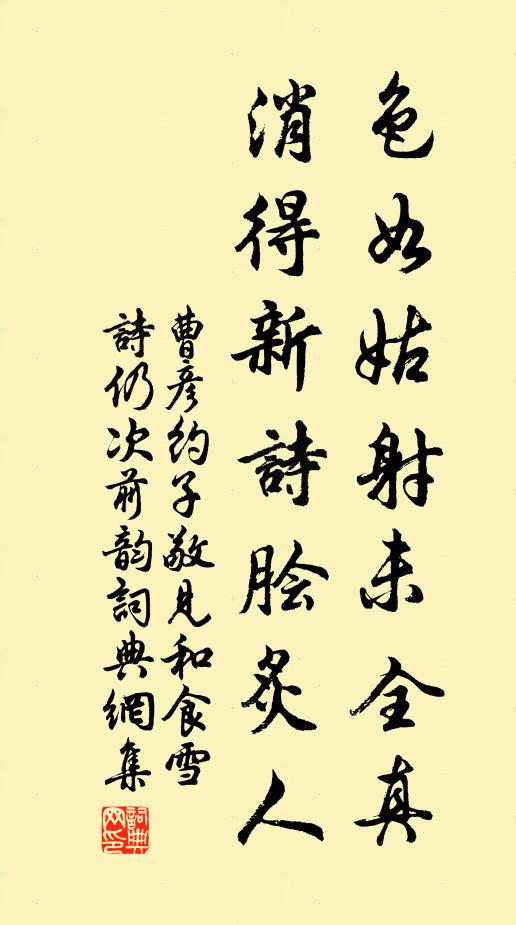 色如姑射未全真
消得新詩脍炙人
曹彦約子敬見和食雪
詩仍次前韵詞典網集
詞典
网印